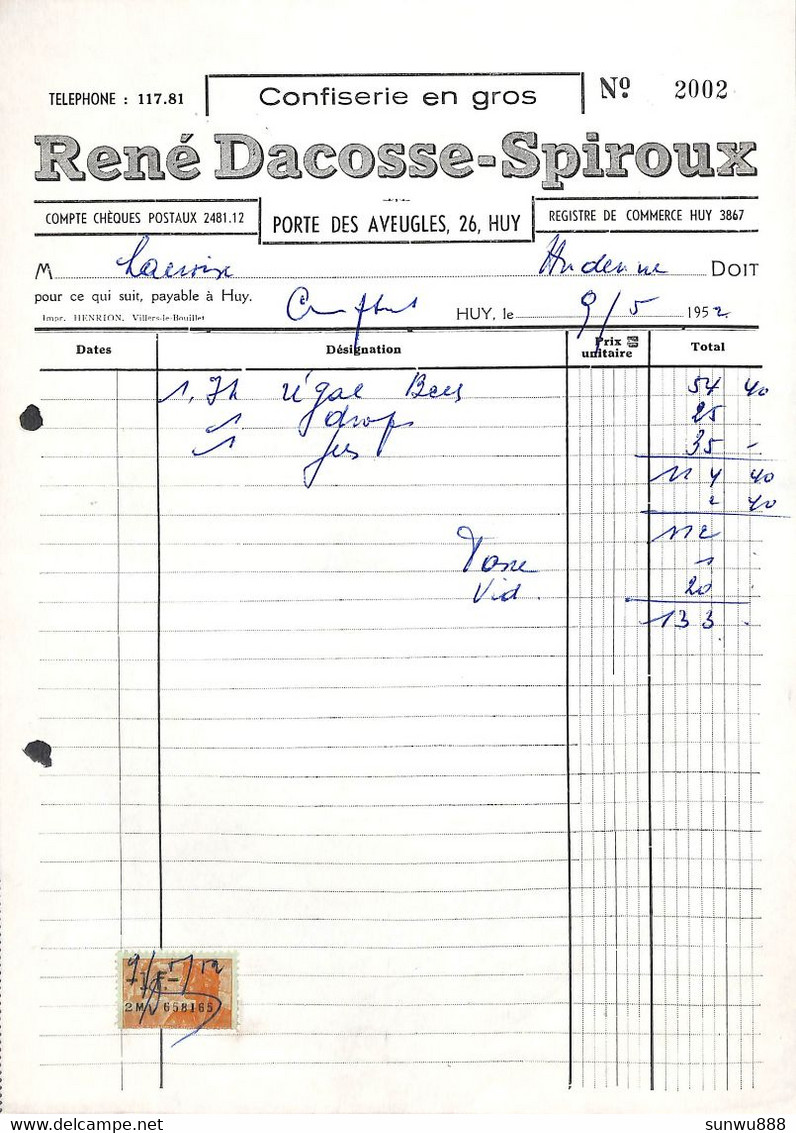 TELEPHONE : 117.81 Confiserie en gros Nº 2002
René Dacosse-Spiroux
COMPTE CHÈQUES POSTAUX 2481.12 PORTE DES AVEUGLES, 26, HUY REGISTRE DE COMMERCE HUY 3867
M Lacroix Andenne DOIT
pour ce qui suit, payable à Huy.
Impr. HENRION, Villers-le-Bouillet HUY, le 9/5 1952
Dates Désignation Prix unitaire Total
1, régal 54 40
1 drops 25
1 35 -
114 40
2 40
112
Taxe 1
Vid. 20
133 -
9/5/52
2M 658165
sunwu888